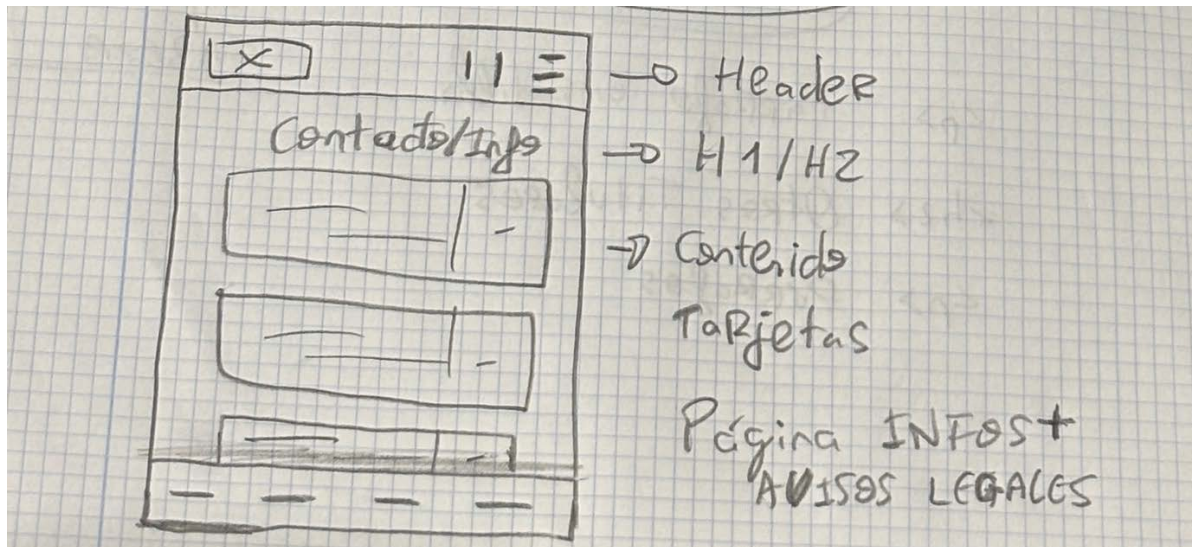 Header
Contacto/Info
H1/H2
Contenido
Tarjetas
Página INFOS+
AVISOS LEGALES